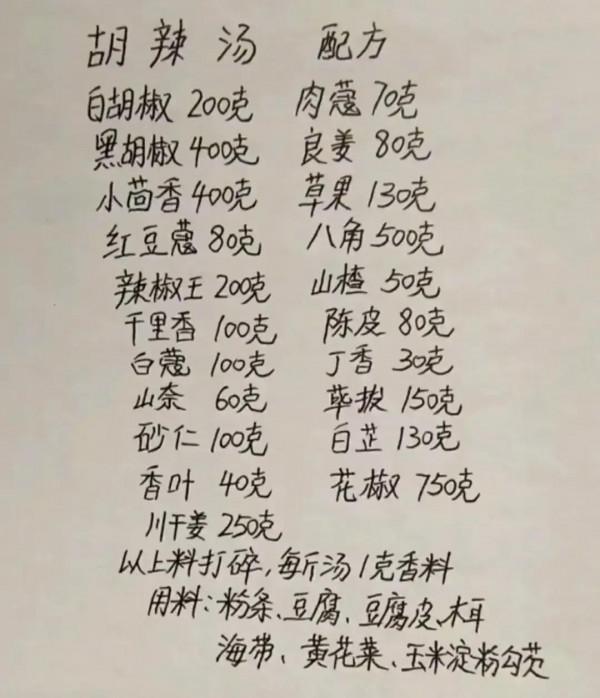 胡辣汤 配方
白胡椒 200克 肉蔻 70克
黑胡椒 400克 良姜 80克
小茴香 400克 草果 130克
红豆蔻 80克 八角 500克
辣椒王 200克 山楂 50克
千里香 100克 陈皮 80克
白蔻 100克 丁香 30克
山奈 60克 荜拔 150克
砂仁 100克 白芷 130克
香叶 40克 花椒 750克
川干姜 250克
以上料打碎,每斤汤1克香料
用料:粉条、豆腐、豆腐皮、木耳
海带、黄花菜、玉米淀粉勾芡